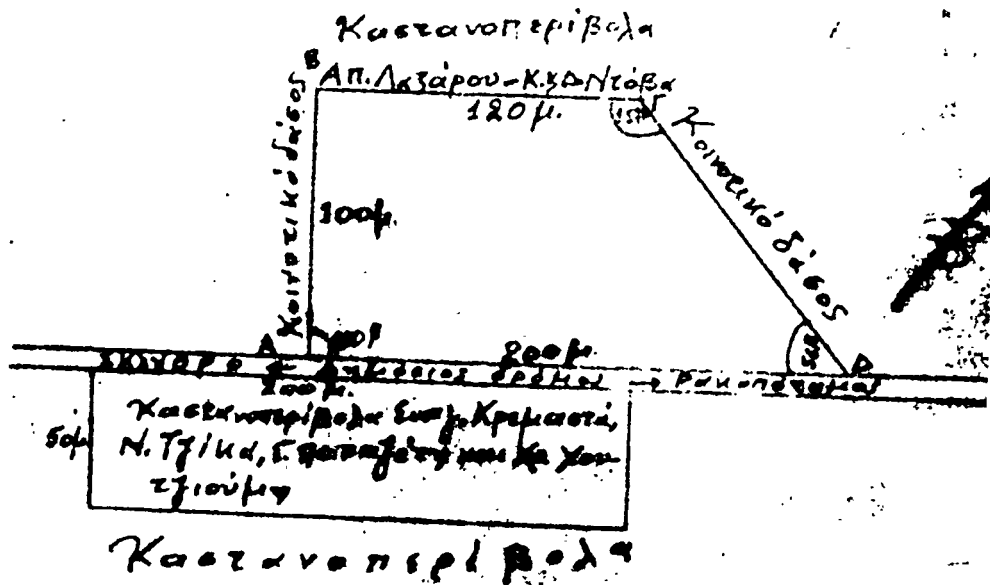 Καστανοπερίβολα
Β
Απ. Λαζάρου - Κ.χΔ Ντόβα
120μ.
Γ
Κοινοτικό δάσος
100μ.
Κοινοτικό δάσος
Α
Δ
200μ.
ΣΚΛΗΘΡΟ ← Δημόσιος δρόμος → Ρακοπόταμος
200μ.
50μ
Καστανοπερίβολα Κρεμαστά,
Ν. Τζίκα,
Καστανοπερίβολα